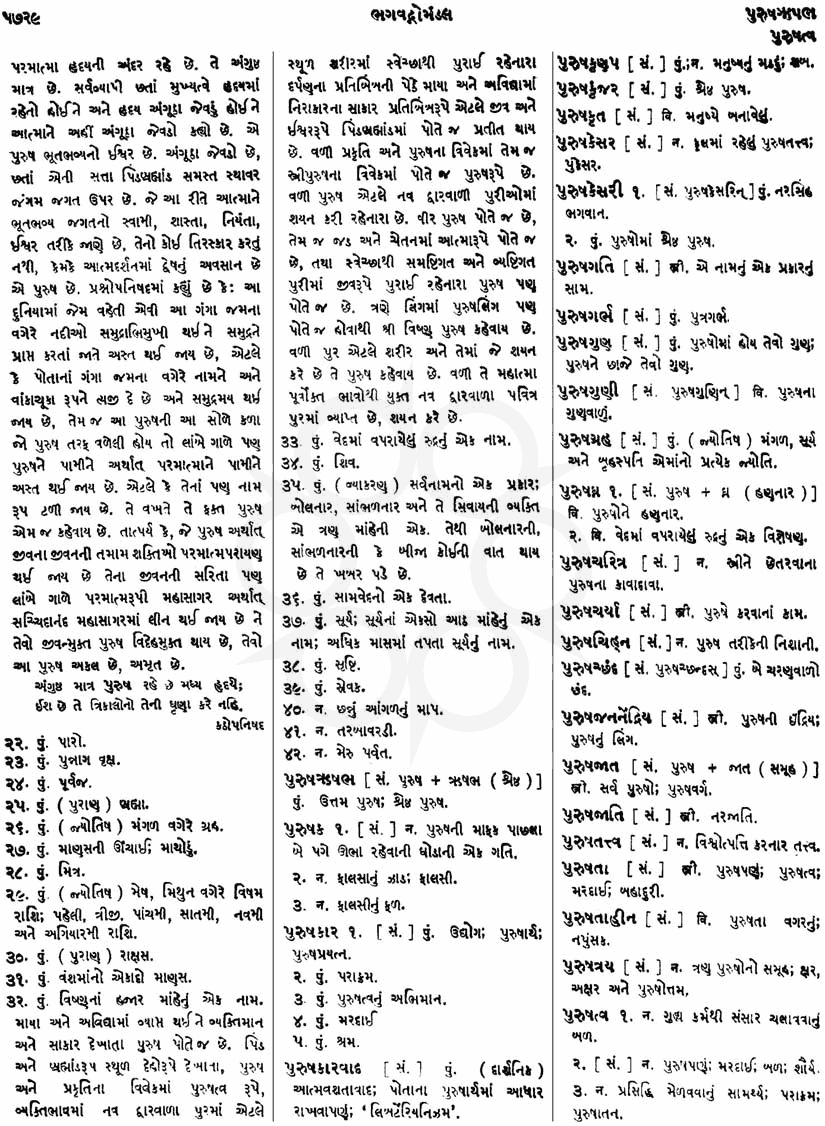 ૫૭૨૯
ભગવદ્ગોમંડલ
પુરુષઋષભ
પુરુષત્વ
પરમાત્મા હૃદયની અંદર રહે છે. તે અંગુષ્ઠ
માત્ર છે. સર્વવ્યાપી છતાં મુખ્યત્વે હૃદયમાં
રહેતો હોઈને અને હૃદય અંગૂઠા જેવડું હોઈને
આત્માને અહીં અંગૂઠા જેવડો કહ્યો છે. એ
પુરુષ ભૂતભવ્યનો ઈશ્વર છે. અંગૂઠા જેવડો છે,
છતાં એની સત્તા પિંડબ્રહ્માંડ સમસ્ત સ્થાવર
જંગમ જગત ઉપર છે. જે આ રીતે આત્માને
ભૂતભવ્ય જગતનો સ્વામી, શાસ્તા, નિયંતા,
ઈશ્વર તરીકે જાણે છે, તેનો કોઈ તિરસ્કાર કરતું
નથી, કેમકે આત્મદર્શનમાં દ્વેષનું અવસાન છે
એ પુરુષ છે. પ્રશ્નોપનિષદમાં કહ્યું છે કે: આ
દુનિયામાં જેમ વહેતી એવી આ ગંગા જમના
વગેરે નદીઓ સમુદ્રાભિમુખી થઈને સમુદ્રને
પ્રાપ્ત કરતાં જાતે અસ્ત થઈ જાય છે, એટલે
કે પોતાનાં ગંગા જમના વગેરે નામને અને
વાંકાચૂકા રૂપને ત્યજી દે છે અને સમુદ્રમય થઈ
જાય છે, તેમ જ આ પુરુષની આ સોળે કળા
જો પુરુષ તરફ વળેલી હોય તો લાંબે ગાળે પણ
પુરુષને પામીને અર્થાત્ પરમાત્માને પામીને
અસ્ત થઈ જાય છે. એટલે કે તેનાં પણ નામ
રૂપ ટળી જાય છે. તે વખતે તે ફક્ત પુરુષ
એમ જ કહેવાય છે. તાત્પર્ય કે, જે પુરુષ અર્થાત્
જીવના જીવનની તમામ શક્તિઓ પરમાત્મપરાયણ
થઈ જાય છે તેના જીવનની સરિતા પણ
લાંબે ગાળે પરમાત્મરૂપી મહાસાગર અર્થાત્
સચ્ચિદાનંદ મહાસાગરમાં લીન થઈ જાય છે ને
તેવો જીવન્મુક્ત પુરુષ વિદેહમુક્ત થાય છે, તેવો
આ પુરુષ અકલ છે, અમૃત છે.
અંગુષ્ઠ માત્ર પુરુષ રહે છે મધ્ય હૃદયે;
ઈશ છે તે ત્રિકાલોનો તેની ઘૃણા કરે નહિ.
કઠોપનિષદ
૨૨. પું. પારો.
૨૩. પું. પુન્નાગ વૃક્ષ.
૨૪. પું. પૂર્વજ.
૨૫. પું. ( પુરાણ ) બ્રહ્મા.
૨૬. પું. ( જ્યોતિષ ) મંગળ વગેરે ગ્રહ.
૨૭. પું. માણસની ઊંચાઈ; માથોડું.
૨૮. પું. મિત્ર.
૨૯. પું. ( જ્યોતિષ ) મેષ, મિથુન વગેરે વિષમ
રાશિ; પહેલી, ત્રીજી, પાંચમી, સાતમી, નવમી
અને અગિયારમી રાશિ.
૩૦. પું. ( પુરાણ ) રાક્ષસ.
૩૧. પું. વંશમાંનો એકાદો માણસ.
૩૨. પું. વિષ્ણુનાં હજાર માંહેનું એક નામ.
માયા અને અવિદ્યામાં વ્યાપ્ત થઈને વ્યક્તિમાન
અને સાકાર દેખાતા પુરુષ પોતે જ છે. પિંડ
અને બ્રહ્માંડરૂપ સ્થૂળ દેહોરૂપે દેખાતા, પુરુષ
અને પ્રકૃતિના વિવેકમાં પુરુષત્વ રૂપે,
વ્યક્તિભાવમાં નવ દ્વારવાળા પુરમાં એટલે
સ્થૂળ શરીરમાં સ્વેચ્છાથી પુરાઈ રહેનારા
દર્પણના પ્રતિબિંબની પેઠે માયા અને અવિદ્યામાં
નિરાકારના સાકાર પ્રતિબિંબરૂપે એટલે જીવ અને
ઈશ્વરરૂપે પિંડબ્રહ્માંડમાં પોતે જ પ્રતીત થાય
છે. વળી પ્રકૃતિ અને પુરુષના વિવેકમાં તેમ જ
સ્ત્રીપુરુષના વિવેકમાં પોતે જ પુરુષરૂપે છે.
વળી પુરુષ એટલે નવ દ્વારવાળી પુરીઓમાં
શયન કરી રહેનારા છે. વીર પુરુષ પોતે જ છે,
તેમ જ જડ અને ચેતનમાં આત્મારૂપે પોતે જ
છે, તથા સ્વેચ્છાથી સમષ્ટિગત અને વ્યષ્ટિગત
પુરીમાં જીવરૂપે પુરાઈ રહેનારા પુરુષ પણ
પોતે જ છે. ત્રણે લિંગમાં પુરુષલિંગ પણ
પોતે જ હોવાથી શ્રી વિષ્ણુ પુરુષ કહેવાય છે.
વળી પુર એટલે શરીર અને તેમાં જે શયન
કરે છે તે પુરુષ કહેવાય છે. વળી તે મહાત્મા
પૂર્વોક્ત ભાવોથી યુક્ત નવ દ્વારવાળા પવિત્ર
પુરમાં વ્યાપ્ત છે, શયન કરે છે.
૩૩. પું. વેદમાં વપરાયેલું રુદ્રનું એક નામ.
૩૪. પું. શિવ.
૩૫. પું. ( વ્યાકરણ ) સર્વનામનો એક પ્રકાર;
બોલનાર, સાંભળનાર અને તે સિવાયની વ્યક્તિ
એ ત્રણ માંહેની એક. તેથી બોલનારની,
સાંભળનારની કે બીજા કોઈની વાત થાય
છે તે ખબર પડે છે.
૩૬. પું. સામવેદનો એક દેવતા.
૩૭. પું. સૂર્ય; સૂર્યનાં એકસો આઠ માંહેનું એક
નામ; અધિક માસમાં તપતા સૂર્યનું નામ.
૩૮. પું. સૃષ્ટિ.
૩૯. પું. સેવક.
૪૦. ન. છન્નું આંગળનું માપ.
૪૧. ન. તરખાવરડી.
૪૨. ન. મેરુ પર્વત.
પુરુષઋષભ [ સં. પુરુષ + ઋષભ ( શ્રેષ્ઠ ) ]
પું. ઉત્તમ પુરુષ; શ્રેષ્ઠ પુરુષ.
પુરુષક ૧. [ સં. ] ન. પુરુષની માફક પાછલા
બે પગે ઊભા રહેવાની ઘોડાની એક ગતિ.
૨. ન. ફાલસાનું ઝાડ; ફાલસી.
૩. ન. ફાલસીનું ફળ.
પુરુષકાર ૧. [ સં. ] પું. ઉદ્યોગ; પુરુષાર્થ;
પુરુષપ્રયત્ન.
૨. પું. પરાક્રમ.
૩. પું. પુરુષત્વનું અભિમાન.
૪. પું. મરદાઈ
૫. પું. શ્રમ.
પુરુષકારવાદ [ સં. ] પું. ( દાર્શનિક )
આત્મવશતાવાદ; પોતાના પુરુષાર્થમાં આધાર
રાખવાપણું; ‘ લિબર્ટેરિયનિઝમ’.
પુરુષકુણપ [ સં. ] પું.;ન. મનુષ્યનું મડદું; શબ.
પુરુષકુંજર [ સં. ] પું. શ્રેષ્ઠ પુરુષ.
પુરુષકૃત [ સં. ] વિ. મનુષ્યે બનાવેલું.
પુરુષકેસર [ સં. ] ન. ફૂલમાં રહેલું પુરુષતત્ત્વ;
પુંકેસર.
પુરુષકેસરી ૧. [ સં. પુરુષકેસરિન્ ] પું. નરસિંહ
ભગવાન.
૨. પું. પુરુષોમાં શ્રેષ્ઠ પુરુષ.
પુરુષગતિ [ સં. ] સ્ત્રી. એ નામનું એક પ્રકારનું
સામ.
પુરુષગર્ભ [ સં. ] પું. પુત્રગર્ભ.
પુરુષગુણ [ સં. ] પું. પુરુષોમાં હોય તેવો ગુણ;
પુરુષને છાજે તેવો ગુણ.
પુરુષગુણી [ સં. પુરુષગુણિન્ ] વિ. પુરુષના
ગુણવાળું.
પુરુષગ્રહ [ સં. ] પું. ( જ્યોતિષ ) મંગળ, સૂર્ય
અને બૃહસ્પતિ એમાંનો પ્રત્યેક જ્યોતિ.
પુરુષઘ્ન ૧. [ સં. પુરુષ + ઘ્ન ( હણનાર ) ]
વિ. પુરુષોને હણનાર.
૨. વિ. વેદમાં વપરાયેલું રુદ્રનું એક વિશેષણ.
પુરુષચરિત્ર [ સં. ] ન. સ્ત્રીને છેતરવાના
પુરુષના કાવાદાવા.
પુરુષચર્યા [ સં. ] સ્ત્રી. પુરુષે કરવાનાં કામ.
પુરુષચિહ્ન [ સં. ] ન. પુરુષ તરીકેની નિશાની.
પુરુષચ્છંદ [ સં. પુરુષચ્છન્દસ્ ] પું. બે ચરણવાળો
છંદ.
પુરુષજનનેંદ્રિય [ સં. ] સ્ત્રી. પુરુષની ઇંદ્રિય;
પુરુષનું લિંગ.
પુરુષજાત [ સં. પુરુષ + જાત ( સમૂહ ) ]
સ્ત્રી. સર્વ પુરુષો; પુરુષવર્ગ.
પુરુષજાતિ [ સં. ] સ્ત્રી. નરજાતિ.
પુરુષતત્ત્વ [ સં. ] ન. વિશ્વોત્પત્તિ કરનાર તત્ત્વ.
પુરુષતા [ સં. ] સ્ત્રી. પુરુષપણું; પુરુષત્વ;
મરદાઈ; બહાદુરી.
પુરુષતાહીન [ સં. ] વિ. પુરુષતા વગરનું;
નપુંસક.
પુરુષત્રય [ સં. ] ન. ત્રણ પુરુષોનો સમૂહ; ક્ષર,
અક્ષર અને પુરુષોત્તમ.
પુરુષત્વ ૧. ન. ગુહ્ય કર્મથી સંસાર ચલાવવાનું
બળ.
૨. [ સં. ] ન. પુરુષપણું; મરદાઈ; બળ; શૌર્ય.
૩. ન. પ્રસિદ્ધિ મેળવવાનું સામર્થ્ય; પરાક્રમ;
પુરુષાતન.